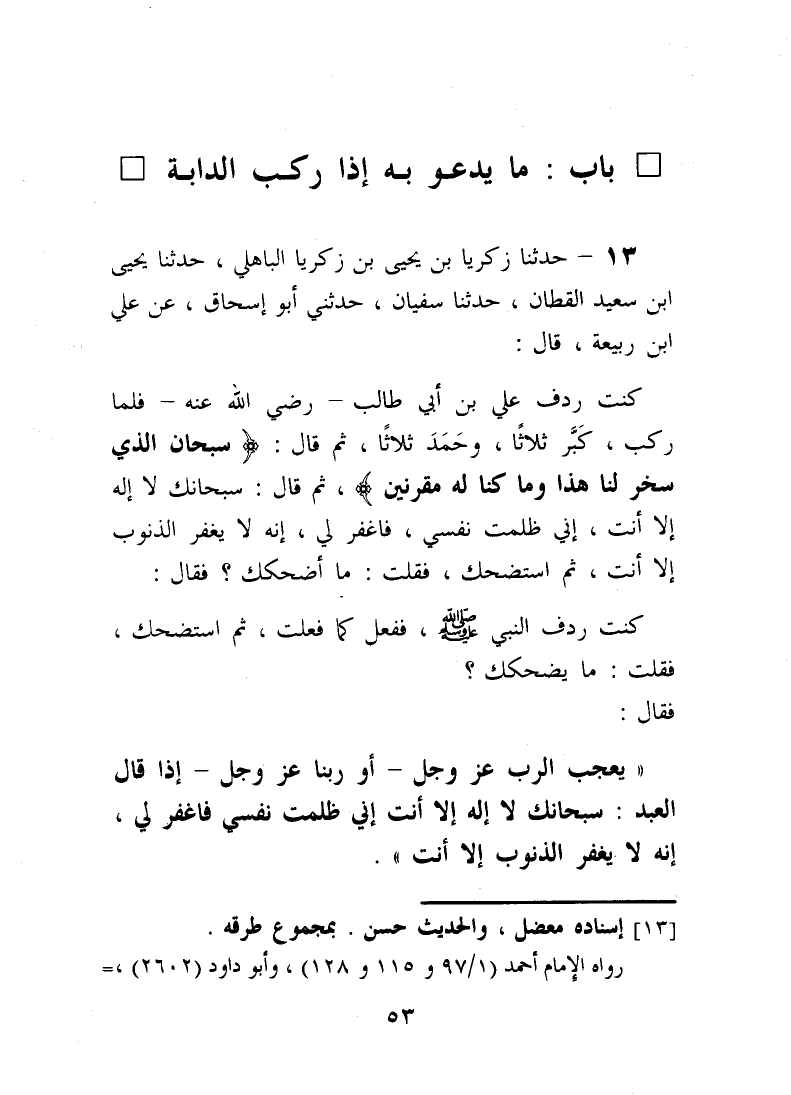 □ باب : ما يدعـو بـه إذا ركـب الدابـة □
١٣ – حدثنا زكريا بن يحيى بن زكريا الباهلي ، حدثنا يحيى
ابن سعيد القطان ، حدثنا سفيان ، حدثني أبو إسحاق ، عن علي
ابن ربيعة ، قال :
كنت ردف علي بن أبي طالب – رضي الله عنه – فلما
ركب ، كَبَّر ثلاثًا ، وحَمَدَ ثلاثًا ، ثم قال : ﴿ سبحان الذي
سخر لنا هذا وما كنا له مقرنين ﴾ ، ثم قال : سبحانك لا إله
إلا أنت ، إني ظلمت نفسي ، فاغفر لي ، إنه لا يغفر الذنوب
إلا أنت ، ثم استضحك ، فقلت : ما أضحكك ؟ فقال :
كنت ردف النبي ﷺ ، ففعل كما فعلت ، ثم استضحك ،
فقلت : ما يضحكك ؟
فقال :
« يعجب الرب عز وجل – أو ربنا عز وجل – إذا قال
العبد : سبحانك لا إله إلا أنت إني ظلمت نفسي فاغفر لي ،
إنه لا يغفر الذنوب إلا أنت » .
[١٣] إسناده معضل ، والحديث حسن . بمجموع طرقه .
رواه الإمام أحمد (٩٧/١ و ١١٥ و ١٢٨) ، وأبو داود (٢٦٠٢) ،=
٥٣